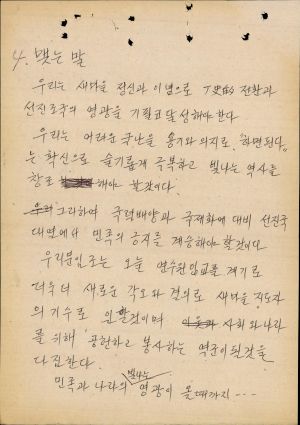 4. 맺는 말
우리는 새마을 정신과 이념으로 歷史的 전환과
선진조국의 영광을 기필코 달성해야 한다
우리는 어려운 국난을 용기와 의지로, "하면된다"
는 확신으로 슬기롭게 극복하고 빛나는 역사를
창조 해야 할것이다.
그리하여 국력배양과 국제화에 대비 선진국
대열에서 민족의 긍지를 계승해야 할것이다.
우리 분임조는 오늘 연수원 입교를 계기로
더욱더 새로운 각오와 결의로 새마을 지도자
의 기수로 임할것이며 사회와 나라
를 위해 공헌하고 봉사하는 역군이 될것을
다짐한다.
민족과 나라의 빛나는 영광이 올때까지 ---